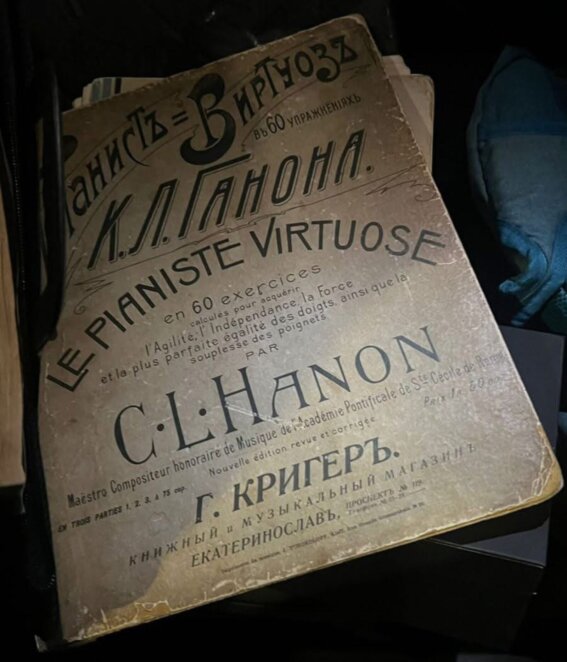 ПіанистЪ = Виртуозъ
въ 60 упражненіяхъ
К.Л.Ганона.
LE PIANISTE VIRTUOSE
en 60 exercices
calculés pour acquérir
l'Agilité, l'Indépendance, la Force
et la plus parfaite égalité des doigts, ainsi que la
souplesse des poignets
PAR
C·L·HANON
Maëstro Compositeur honoraire de Musique de l'Académie Pontificale de Ste Cécile de Rome
Prix 1 r. 50
Nouvelle édition revue et corrigée
EN TROIS PARTIES 1, 2, 3, à 75 cop.
Г. КРИГЕРЪ.
КНИЖНЫЙ и МУЗЫКАЛЬНЫЙ МАГАЗИНЪ
ЕКАТЕРИНОСЛАВЪ, ПРОСПЕКТЪ №